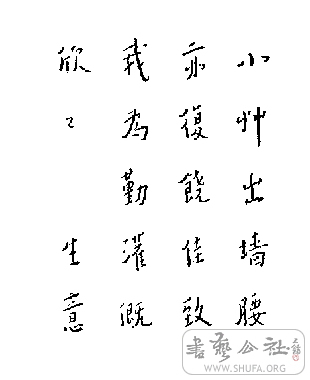 小艸出墙腰
亦復饒佳致
我為勤灌溉
欣〻生意
書藝公社
WWW.SHUFA.ORG